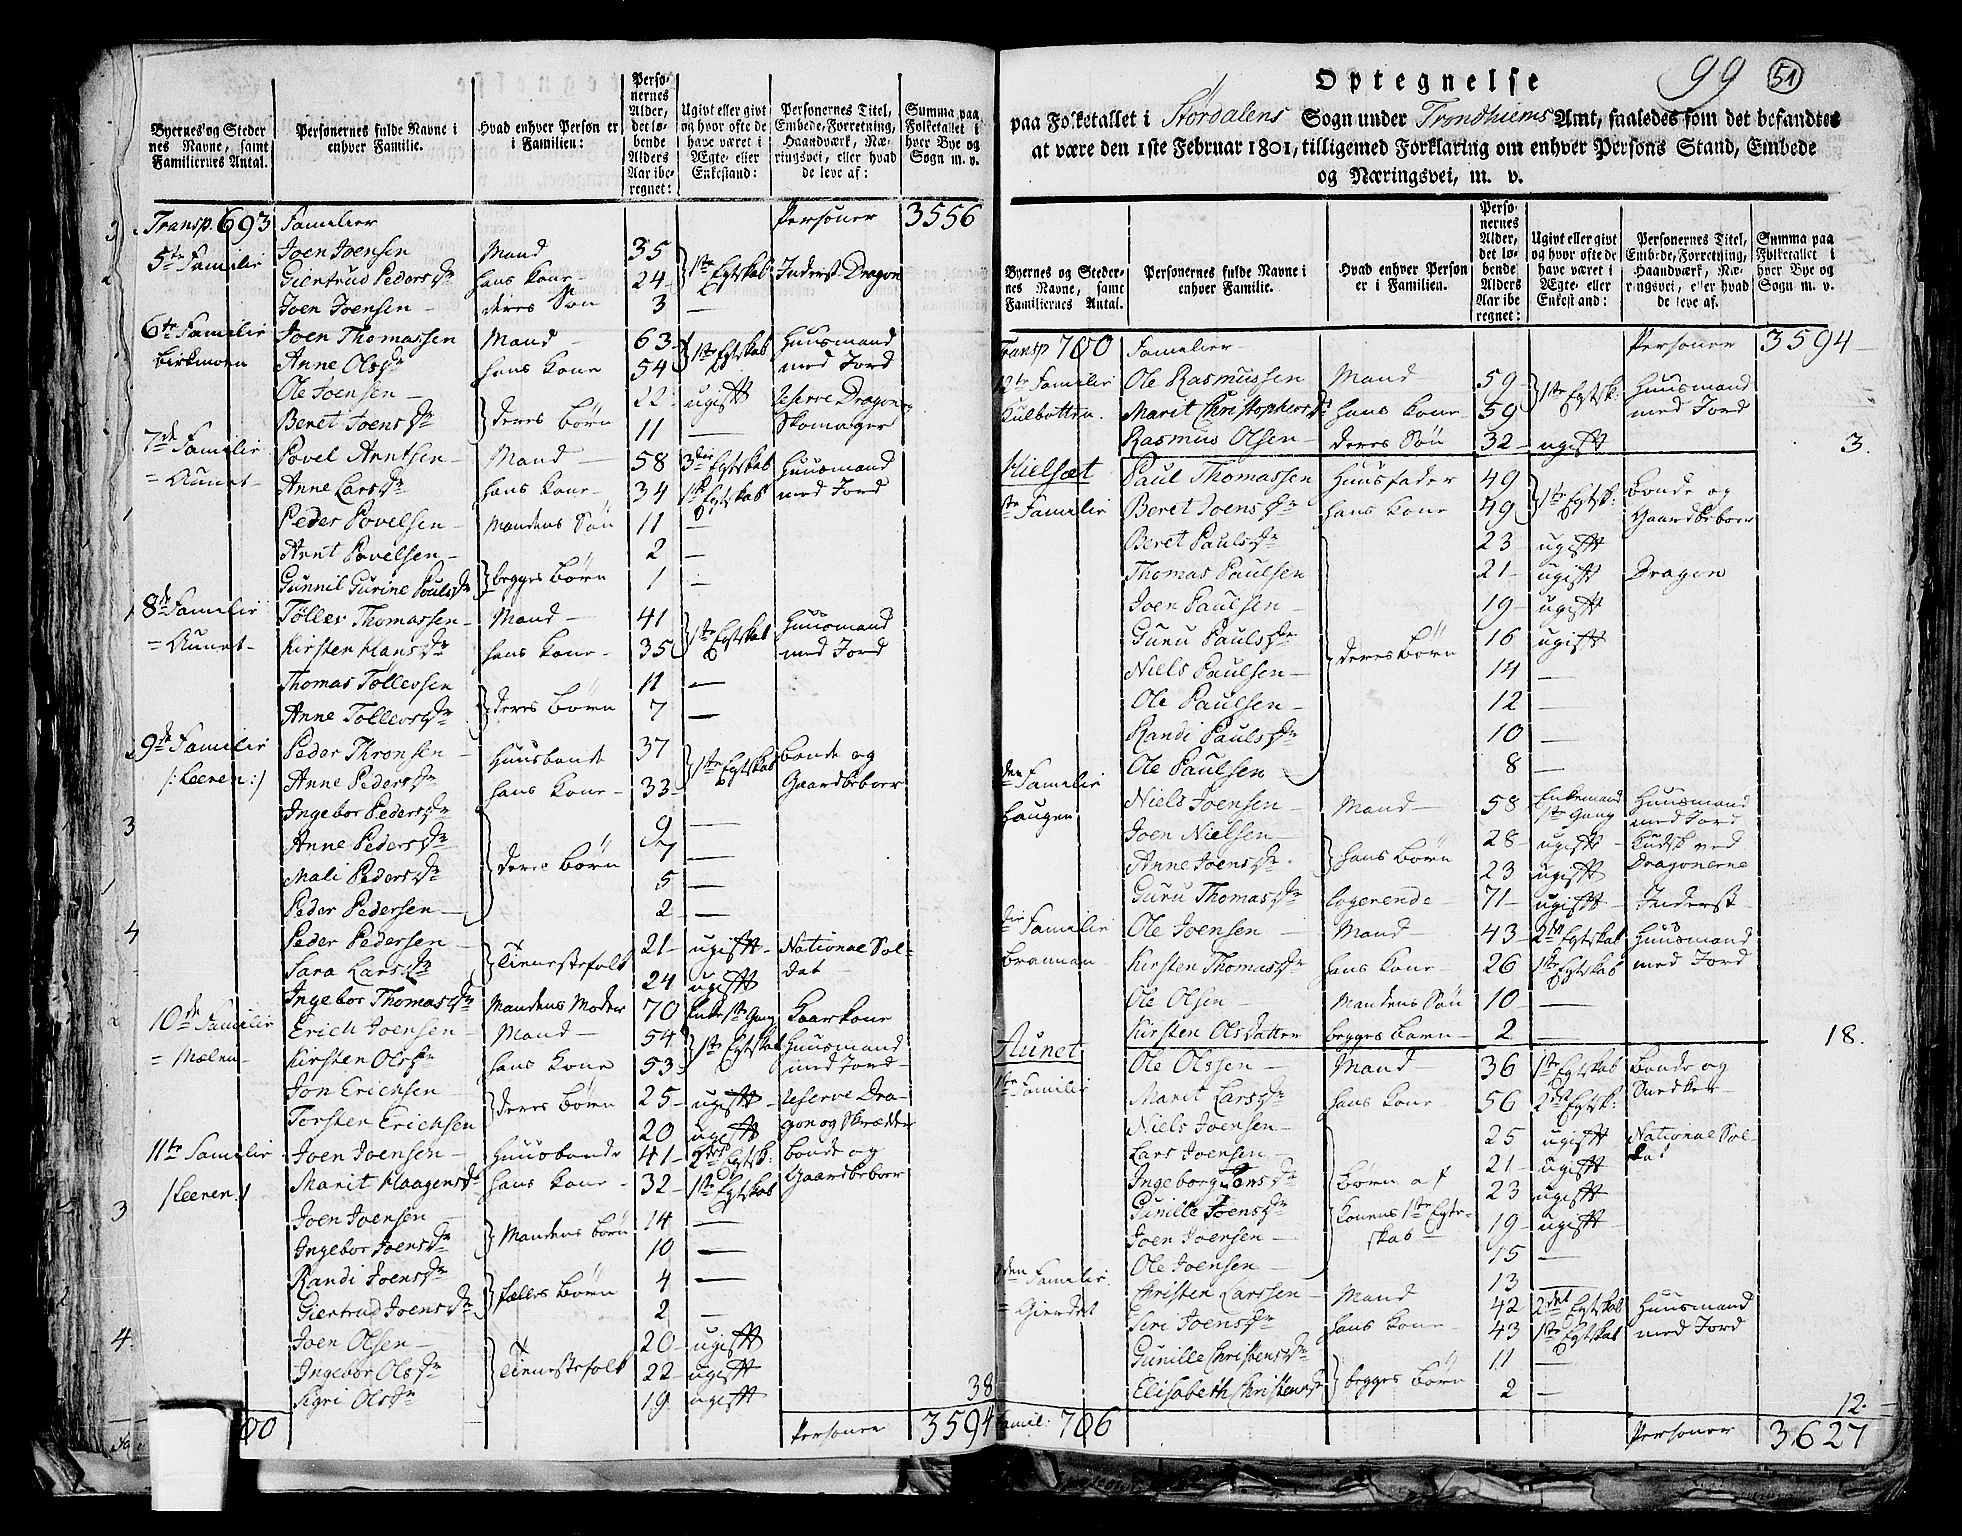 Byernes og Steder
nes Navne, samt
Familiernes Antal.
Personernes fulde Navne i
enhver Familie.
Hvad enhver Person er
i Familien:
Perso-
nernes
Alder,
det lø-
bende
Alders
Aar ibe-
regnet:
Ugivt eller givt
og hvor ofte de
have været i
Ægte- eller
Enkestand:
Personernes Titel,
Embede, Forretning,
Haandværk, Næ-
ringsvei, eller hvad
de leve af:
Summa paa
Folketallet i
hver Bye og
Sogn m. v.
Transp. 693 Familier Personer 3556
5te Familie Joen Joensen Mand 35 1ste Egtskab Inderst Dragon
Giertrud Peders Dr hans Kone 24
Joen Joensen deres Søn 3 —
6te Familie Joen Thomassen Mand 63 1ste Egtskab Huusmand
Birkmoen Anne Ols Dr hans Kone 54 med Jord
Ole Joensen deres Børn 22 ugift reserve Dragon
Beret Joens Dr 11 — Skomager
7de Familie Povel Arntsen Mand 58 3die Egtskab Huusmand
= Aunet Anne Lars Dr hans Kone 34 1ste Egtskab med Jord
Peder Povelsen Mandens Søn 11 —
Arnt Povelsen begges Børn 2 —
Gunnil Gurine Pouls Dr 1 —
8de Familie Tøller Thomassen Mand 41 1ste Egtskab Huusmand
= Aunet Kirsten Hans Dr hans Kone 35 med Jord
Thomas Tøllersen deres Børn 11 —
Anne Tøllers Dr 7 —
9de Familie Peder Thronsen Huusbonde 37 1ste Egtskab Bonde og
/: Leeren :/ Anne Peders Dr hans Kone 33 Gaardbeboer
Ingebor Peders Dr deres Børn 9 —
Anne Peders Dr 7 —
Mali Peders Dr 5 —
Peder Pedersen 2 —
Peder Pedersen Tienestefolk 21 ugift National Sol-
Sara Lars Dr 24 ugift dat
Ingebor Thomas Dr Mandens Moder 70 Enke 1ste Gang Kaarkone
10de Familie Erich Joensen Mand 54 1ste Egtskab Huusmand
= Mælen Kirsten Ols Dr hans Kone 53 med Jord
Jon Erichsen deres Børn 25 ugift reserve Dra-
Torsten Erichsen 20 ugift gon og Skrædder
11te Familie Joen Joensen Huusbonde 41 2det Egtsk: Bonde og
/ Leeren :/ Marit Haagens Dr hans Kone 32 1ste Egtskab Gaardbeboer
Joen Joensen Mandens Børn 14 —
Ingebor Joens Dr 10 —
Randi Joens Dr fælles Børn 4 —
Giertrud Joens Dr 2 —
Joen Olsen Tienestefolk 20 ugift
Ingebor Ols Dr 22 ugift
Sigri Ols Dr 19 ugift 38
00 Personer 3594
99 51
Optegnelse
paa Folketallet i Størdalens Sogn under Trondhiems Amt, saaledes som det befandtes
at være den 1ste Februar 1801, tilligemed Forklaring om enhver Persons Stand, Embede
og Næringsvei, m. v.
Byernes og Steder-
nes Navne, samt
Familiernes Antal.
Personernes fulde Navne i
enhver Familie.
Hvad enhver Person
er i Familien.
Perso-
nernes
Alder,
det lø-
bende
Alders
Aar ibe
regnet:
Ugivt eller givt
og hvor ofte de
have været i
Ægte- eller
Enkestand:
Personernes Titel,
Embede, Forretning,
Haandværk, Næ-
ringsvei, eller hvad
de leve af.
Summa paa
Folketallet i
hver Bye og
Sogn m. v.
Transp 700 Familier Personer 3594
12te Familie Ole Rasmussen Mand 59 1ste Egtsk: Huusmand
Kulbotten. Marit Christophers Dr hans Kone 59 med Jord
Rasmus Olsen deres Søn 32 ugift 3.
Kielsæt Paul Thomassen Huusfader 49 1ste Egtsk: Bonde og
1ste Familie Beret Joens Dr hans Kone 49 Gaardbeboer
Beret Pauls Dr deres Børn 23 ugift
Thomas Paulsen 21 ugift Dragon
Joen Paulsen 19 ugift
Guru Pauls Dr 16 ugift
Niels Paulsen 14 —
Ole Paulsen 12 —
Randi Pauls Dr 10 —
Ole Paulsen 8 —
den Familie Niels Joensen Mand 58 Enkemand 1ste Gang Huusmand med Jord
Haugen Joen Nielsen hans Børn 28 ugift Kudsk ved
Anne Joens Dr 23 ugift Dragonerne
Guru Thomas Dr logerende 71 ugift Inderst
die Familie Ole Joensen Mand 43 2det Egtskab Huusmand
Kirsten Thomas Dr hans Kone 26 1ste Egtskab med Jord
Ole Olsen Mandens Søn 10 —
Kirsten Olsdatter begges Barn 2 — 18.
Aunet Ole Olsen Mand 36 1ste Egtskab Bonde og
1ste Familie Marit Lars Dr hans Kone 56 2det Egtsk:
Niels Joensen Børn af 25 ugift National Sol-
Lars Joensen Konens 1ste Egte- 21 ugift dat
Ingeborg Joens Dr skab 23 ugift
Gunille Joens Dr 19 ugift
Joen Joensen 15 —
Ole Joensen 13 —
den Familie Christen Larssen Mand 42 2det Egtskab Huusmand
= Gierdet Siri Joens Dr hans Kone 43 1ste Egtskab med Jord
Gunille Christens Dr begges Børn 11 —
Elisabeth Christens Dr 2 — 12.
Famil: 706 Personer 3627